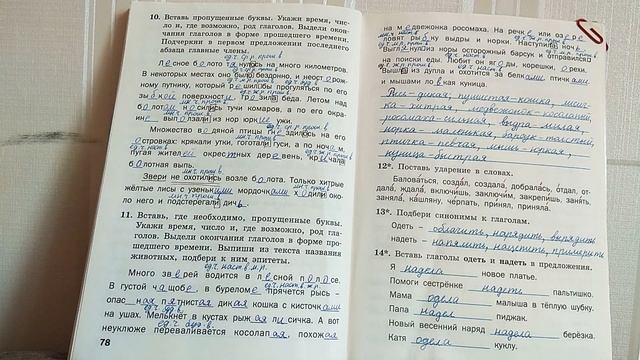 10. Вставь пропущенные буквы. Укажи время, чис-
ло и, где возможно, род глаголов. Выдели окон-
чания глаголов в форме прошедшего времени.
Подчеркни в первом предложении последнего
абзаца главные члены.
ед.ч. ср.р. прош.в.
Лесное болото тянулось на много километров.
В некоторых местах оно было бездонно, и неосторож-
ному путнику, который решил бы прогуляться по его
зыбкой поверхности, грозила беда. Летом над
болотами носились тучи комаров, а по его окра-
ине выползали из нор юркие ужи.
Множество водяной птицы гнездилось на его
островках: крякали утки, гоготали гуси, а по ночам,
пугая жителей окрестных деревень, кричала
болотная выпь.
Звери не охотились возле болота. Только хитрые
жёлтые лисы с узенькими мордочками ходили око-
ло него и подстерегали дичь.
11. Вставь, где необходимо, пропущенные буквы.
Укажи время, число и, где возможно, род гла-
голов. Выдели окончания глаголов в форме про-
шедшего времени. Выпиши из текста названия
животных, подбери к ним эпитеты.
ед.ч. наст.в. м.р.
Много зверей водится в лесной полосе.
В густой чащобе, в буреломе прячется рысь –
опасная пятнистая дикая кошка с кисточками
на ушах. Мелькнёт в кустах рыжая лисичка. А вот
неуклюже переваливается косолапая, похожая
78
на медвежонка росомаха. На речке или озере
ловят рыбку выдры и норки. Наступила ночь.
Выглянул из норы осторожный барсук и отправился
на поиски еды. Любит он жёлуди, корешки, орехи.
Вышла из дупла и охотится за белками, птичками
и мышами ловкая куница.
Рысь-дикая; пушистая-кошка, лисич-
ка-хитрая, медвежонок-косолапый,
росомаха-сильная, выдра-милая,
норка - маленькая, барсук-толстый,
птичка-певчая, мышь-юркая,
куница-быстрая
12*. Поставь ударение в словах.
Баловаться, создал, создала, добралась, отдал, от-
дала, ждала, включишь, заключим, закрепишь, занята,
заняла, кашляну, черпать, принял, приняла.
13*. Подбери синонимы к глаголам.
Одеть – облачить, нарядить, вырядить
надеть – напялить, нацепить, примерить
14*. Вставь глаголы одеть и надеть в предложения.
Я надела новое платье.
Помоги сестрёнке надеть пальтишко.
Мама одела малыша в тёплую шубку.
Папа надел пиджак.
Новый весенний наряд надела берёзка.
Катя одела куклу.